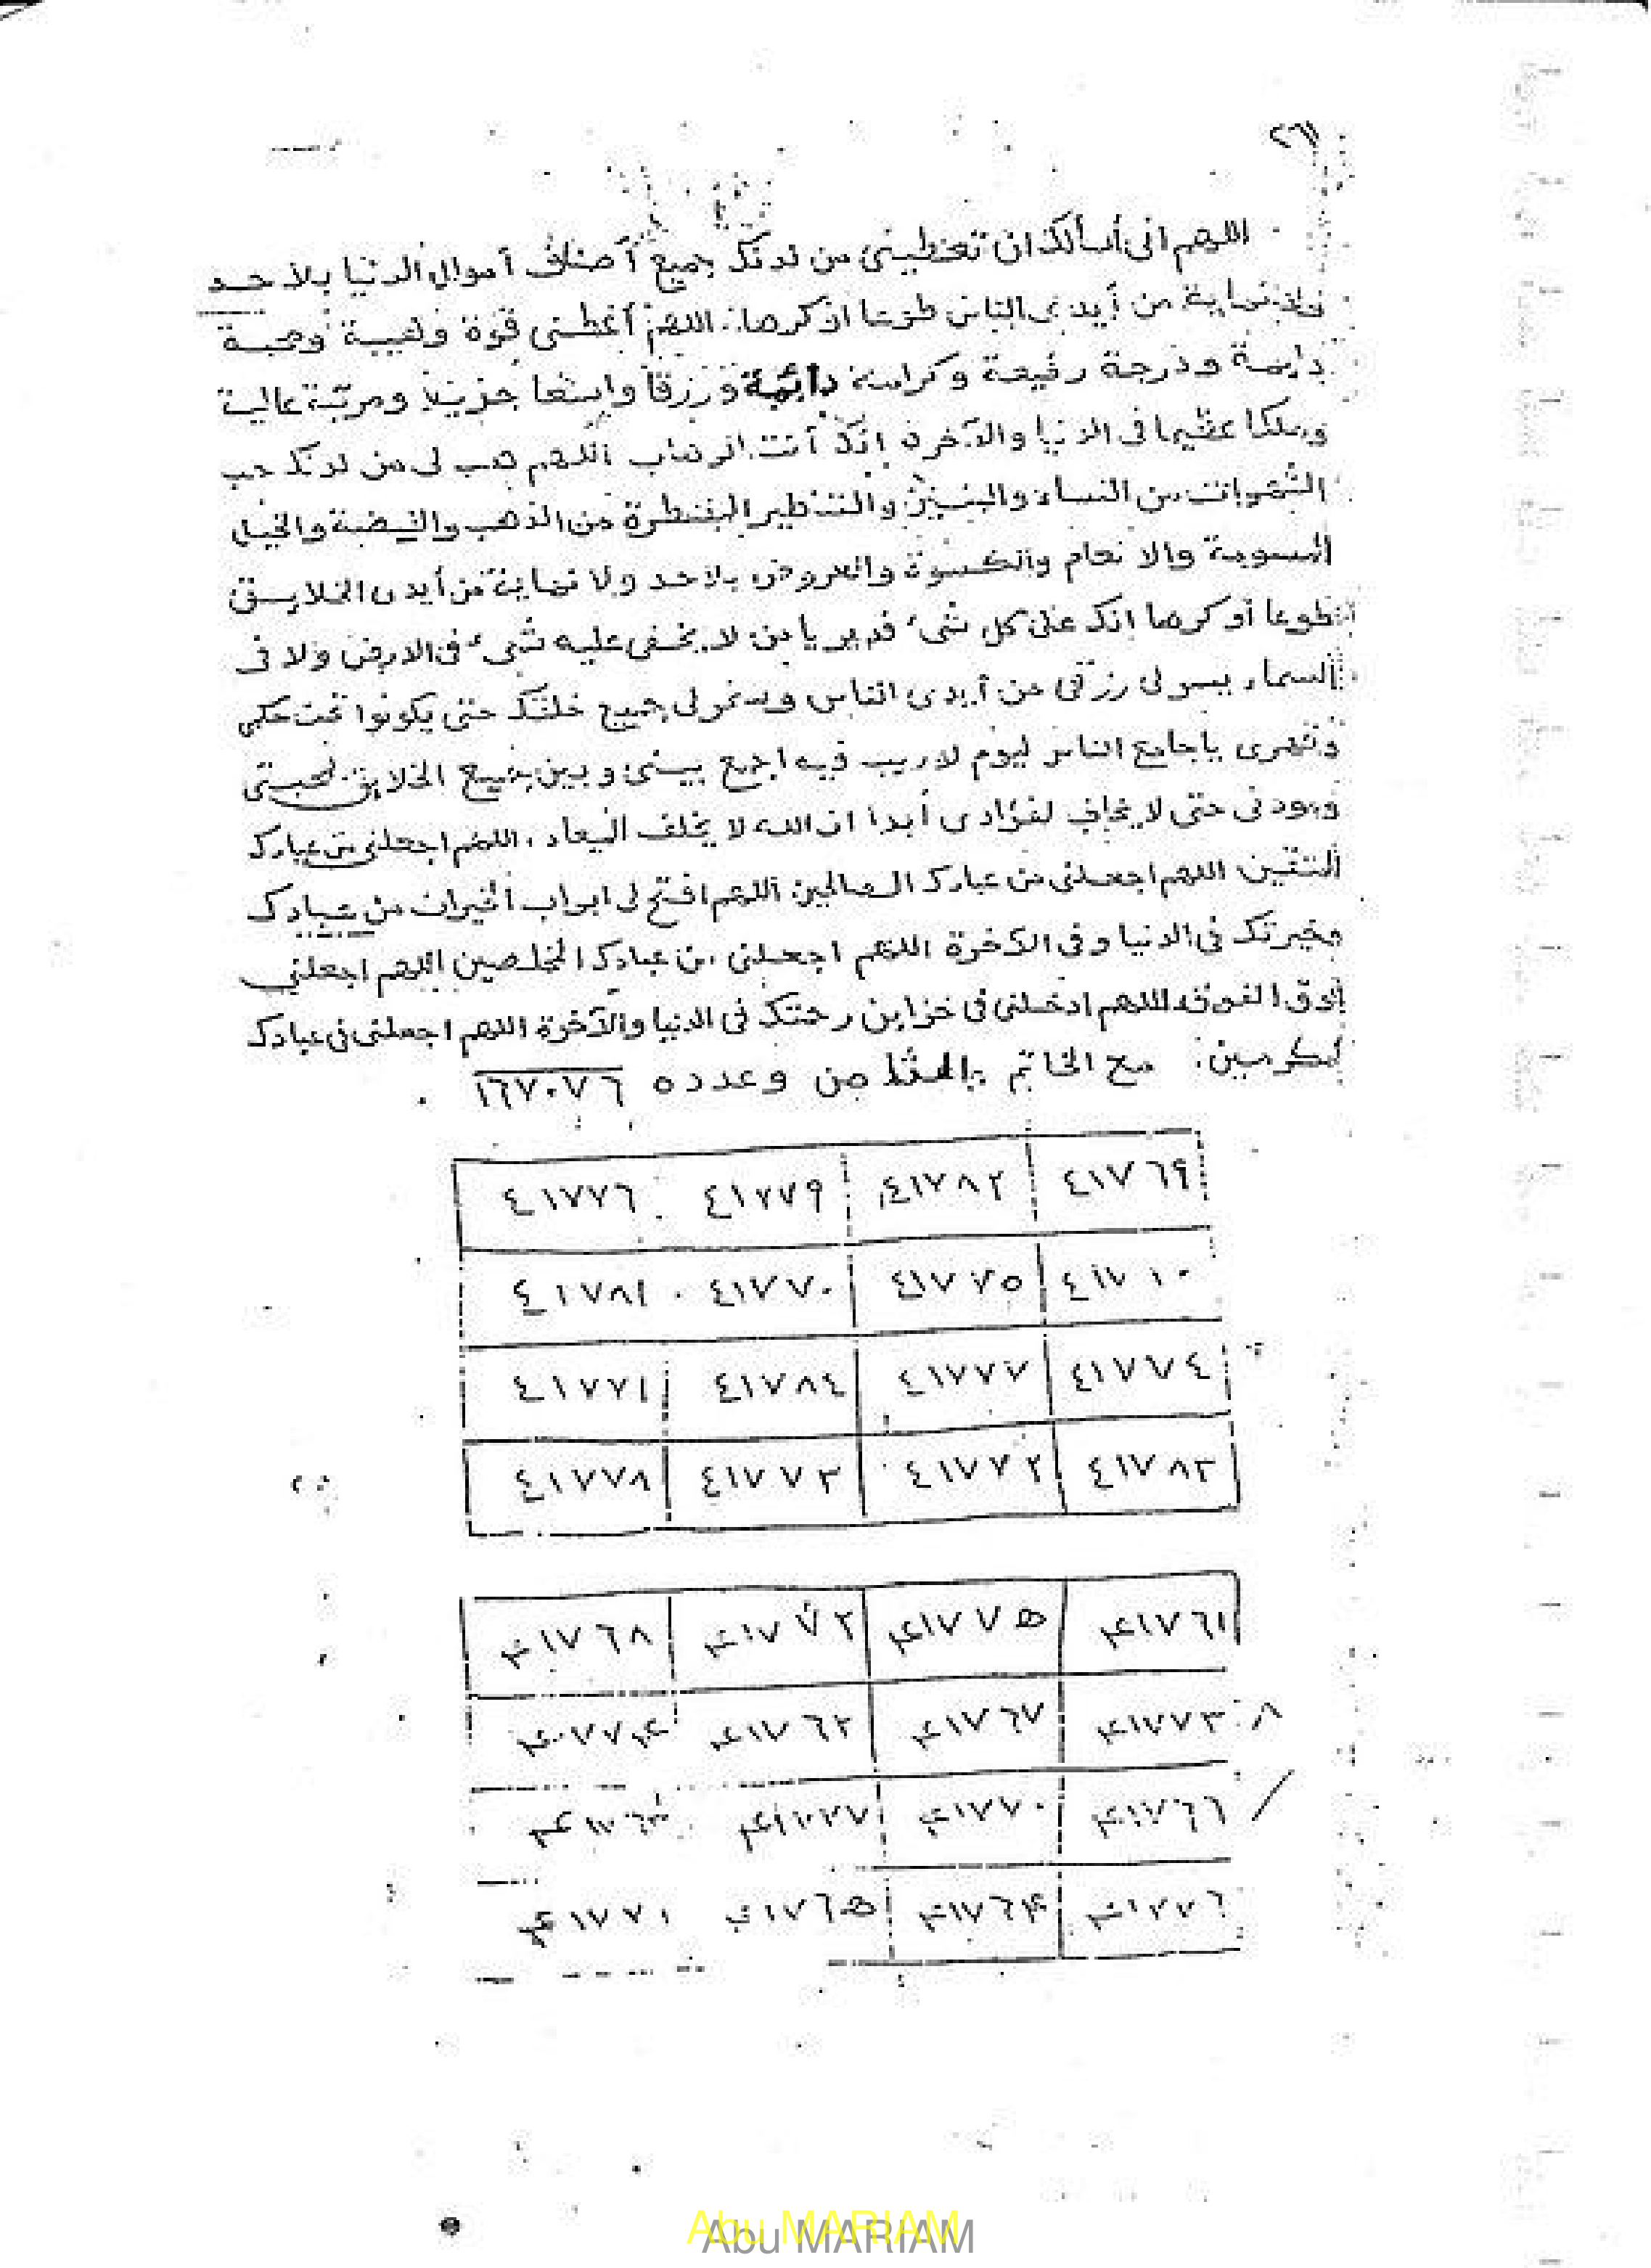 ٢٦١
اللهم انى أسألك ان تعطينى من لدنك جميع أصناف أموال الدنيا بلا حد
ولا نهاية من أيدى الناس طوعا او كرها اللهم أعطنى قوة وهيبة ومحبة
دايمة ودرجة رفيعة وكرامة دائمة ورزقا واسعا جزيلا ومرتبة عالية
وملكا عظيما فى الدنيا والآخرة انك أنت الوهاب اللهم هب لى من لدنك حب
الشهوات من النساء والبنين والقنطير المقنطرة من الذهب والفضة والخيل
المسومة والانعام والكسوة والعروض بلا حد ولا نهاية من أيدى الخلايق
طوعا أو كرها انك على كل شىء قدير يا من لا يخفى عليه شىء فى الارض ولا فى
السماء يسر لى رزقى من أيدى الناس وسخر لى جميع خلقك حتى يكونوا تحت حكمى
وقهرى يا جامع الناس ليوم لا ريب فيه اجمع بينى وبين جميع الخلايق لمحبتى
ومودتى حتى لا يخاف لفؤادى أبدا ان الله لا يخلف الميعاد . اللهم اجعلنى من عبادك
المتقين اللهم اجعلنى من عبادك الصالحين اللهم افتح لى ابواب الخيرات من عبادك
وخيرتك فى الدنيا وفى الآخرة اللهم اجعلنى من عبادك المخلصين اللهم اجعلنى
فوق اللهم ادخلنى فى خزاين رحمتك فى الدنيا والآخرة اللهم اجعلنى فى عبادك
لمكرمين: مع الخاتم وعدده ١٦٧٠٧٦ .
٤١٧٦٩ ٤١٧٨٢ ٤١٧٧٩ ٤١٧٧٦
٤١٧٧٥ ٤١٧٧٠ ٤١٧٨١
٤١٧٧٤ ٤١٧٧٧ ٤١٧٨٤ ٤١٧٧١
٤١٧٨٣ ٤١٧٧٢ ٤١٧٧٣ ٤١٧٧٨
۴١٧٦١ ۴١٧٧۵ ۴١٧٧٢ ۴١٧٦٨
۴١٧٧٣ ۴١٧٦٧ ۴١٧٦٢ ۴١٧٧۴
۴١٧٦٦ ۴١٧٧٠
۴١٧٧٦ ۴١٧٦۴ ۴١٧٦۵ ۴١٧٧١
Abu MARIAM